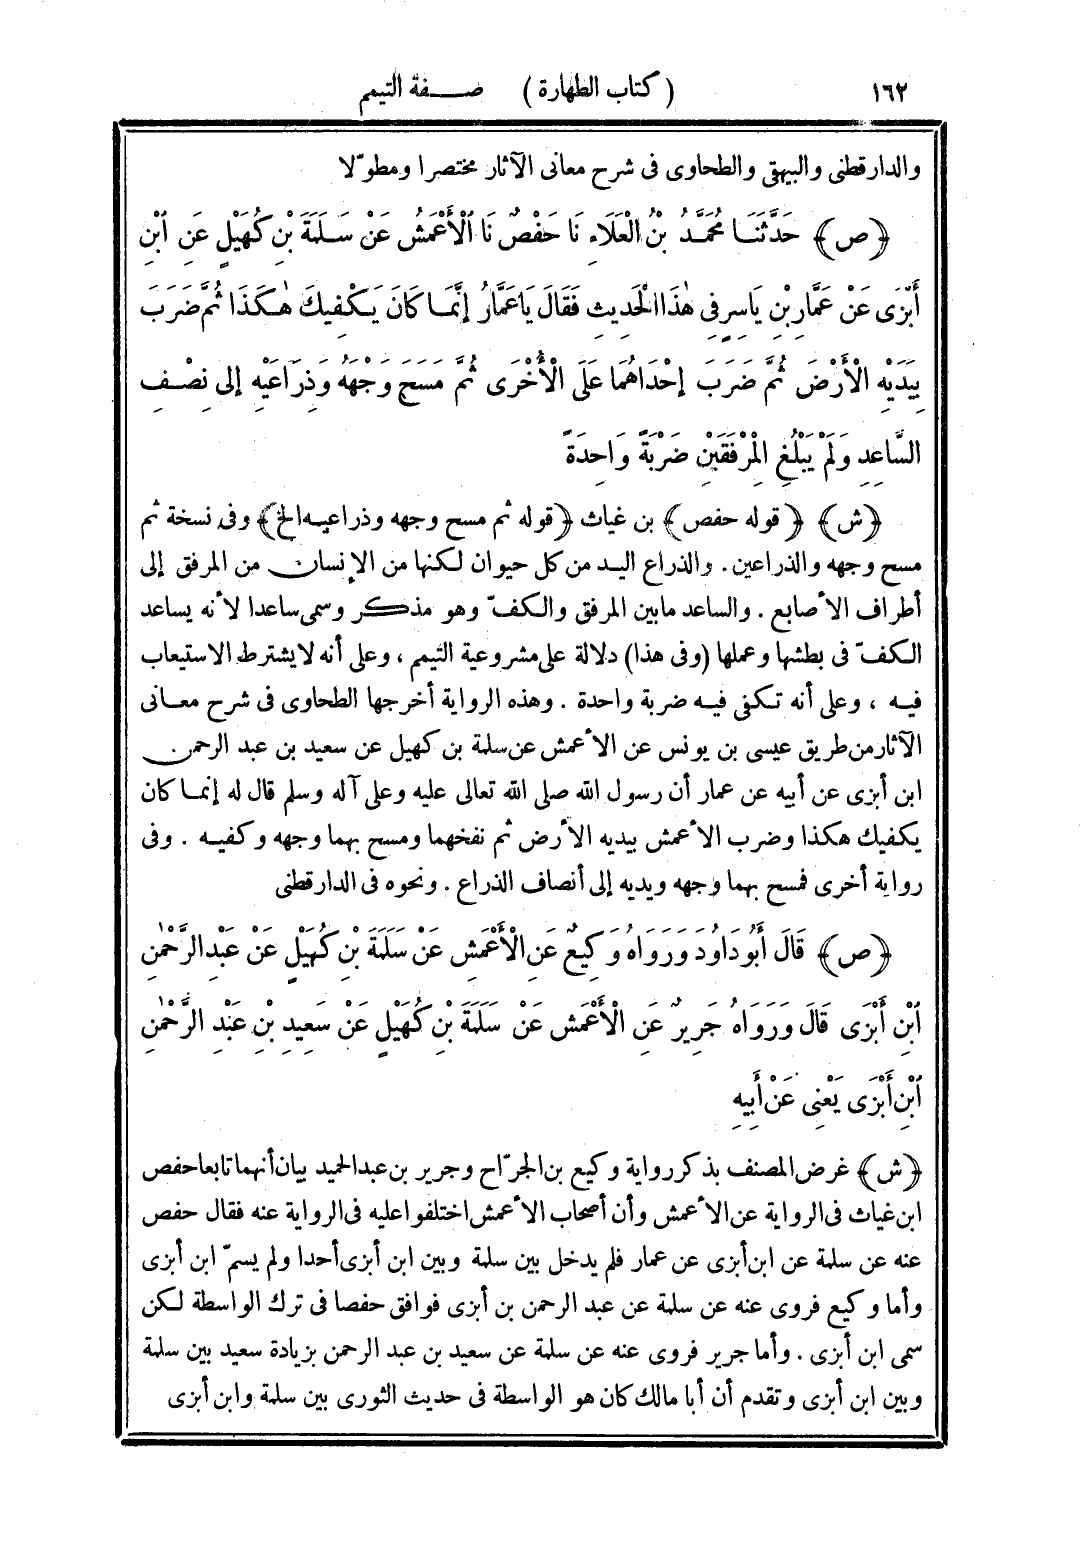 ١٦٢ ( كتاب الطهارة ) صـــفة التيمم
والدارقطنى والبيهقى والطحاوى فى شرح معانى الآثار مختصرا ومطوّلا
﴿ص﴾ حَدَّثَنَا مُحَمَّدُ بْنُ الْعَلَاءِ نَا حَفْصٌ نَا الْأَعْمَشُ عَنْ سَلَمَةَ بْنِ كُهَيْلٍ عَنِ ابْنِ
أَبْزَى عَنْ عَمَّارِ بْنِ يَاسِرٍ فِى هٰذَا الْحَدِيثِ فَقَالَ يَا عَمَّارُ إِنَّمَا كَانَ يَكْفِيكَ هٰكَذَا ثُمَّ ضَرَبَ
بِيَدَيْهِ الْأَرْضَ ثُمَّ ضَرَبَ إِحْدَاهُمَا عَلَى الْأُخْرَى ثُمَّ مَسَحَ وَجْهَهُ وَذِرَاعَيْهِ إِلَى نِصْفِ
السَّاعِدِ وَلَمْ يَبْلُغِ الْمِرْفَقَيْنِ ضَرْبَةً وَاحِدَةً
﴿ش﴾ ﴿قوله حفص﴾ بن غياث ﴿قوله ثم مسح وجهه وذراعيه الخ﴾ وفى نسخة ثم
مسح وجهه والذراعين . والذراع اليد من كل حيوان لكنها من الإنسان من المرفق إلى
أطراف الأصابع . والساعد مابين المرفق والكفّ وهو مذكر وسمى ساعدا لأنه يساعد
الكفّ فى بطشها وعملها (وفى هذا) دلالة على مشروعية التيمم ، وعلى أنه لايشترط الاستيعاب
فيه ، وعلى أنه تكفى فيه ضربة واحدة . وهذه الرواية أخرجها الطحاوى فى شرح معانى
الآثار من طريق عيسى بن يونس عن الأعمش عن سلمة بن كهيل عن سعيد بن عبد الرحمن
ابن أبزى عن أبيه عن عمار أن رسول الله صلى الله تعالى عليه وعلى آله وسلم قال له إنما كان
يكفيك هكذا وضرب الأعمش بيديه الأرض ثم نفخهما ومسح بهما وجهه وكفيه . وفى
رواية أخرى فمسح بهما وجهه ويديه إلى أنصاف الذراع . ونحوه فى الدارقطنى
﴿ص﴾ قَالَ أَبُو دَاوُدَ وَرَوَاهُ وَكِيعٌ عَنِ الْأَعْمَشِ عَنْ سَلَمَةَ بْنِ كُهَيْلٍ عَنْ عَبْدِ الرَّحْمٰنِ
ابْنِ أَبْزَى قَالَ وَرَوَاهُ جَرِيرٌ عَنِ الْأَعْمَشِ عَنْ سَلَمَةَ بْنِ كُهَيْلٍ عَنْ سَعِيدِ بْنِ عَبْدِ الرَّحْمٰنِ
ابْنِ أَبْزَى يَعْنِى عَنْ أَبِيهِ
﴿ش﴾ غرض المصنف بذكر رواية وكيع بن الجرّاح وجرير بن عبد الحميد بيان أنهما تابعا حفص
ابن غياث فى الرواية عن الأعمش وأن أصحاب الأعمش اختلفوا عليه فى الرواية عنه فقال حفص
عنه عن سلمة عن ابن أبزى عن عمار فلم يدخل بين سلمة وبين ابن أبزى أحدا ولم يسمّ ابن أبزى
وأما وكيع فروى عنه عن سلمة عن عبد الرحمن بن أبزى فوافق حفصا فى ترك الواسطة لكن
سمى ابن أبزى . وأما جرير فروى عنه عن سلمة عن سعيد بن عبد الرحمن بزيادة سعيد بين سلمة
وبين ابن أبزى وتقدم أن أبا مالك كان هو الواسطة فى حديث الثورى بين سلمة وابن أبزى